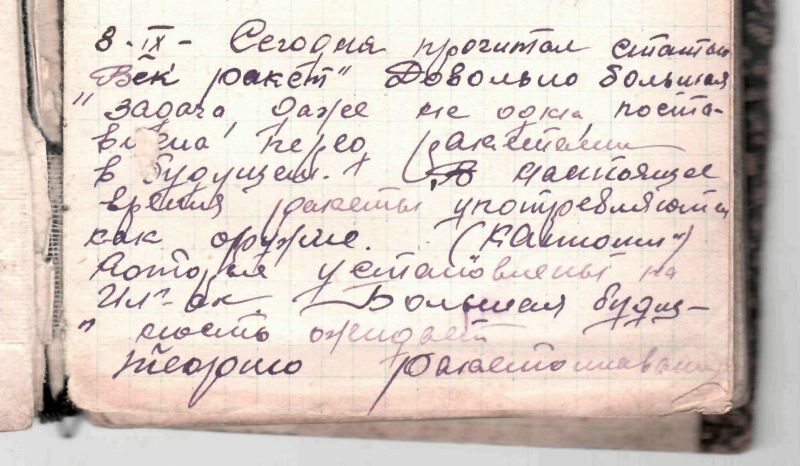 8-IX- Сегодня прочитал статью
"Век ракет" Довольно большая
задача, даже не одна поста-
влена перед ракетами
в будущем. В настоящее
время ракеты употребляются
как оружие. ("Катюши")
которые установлены на
"Ил"-ах. Большая будущ-
ность ожидает
теорию